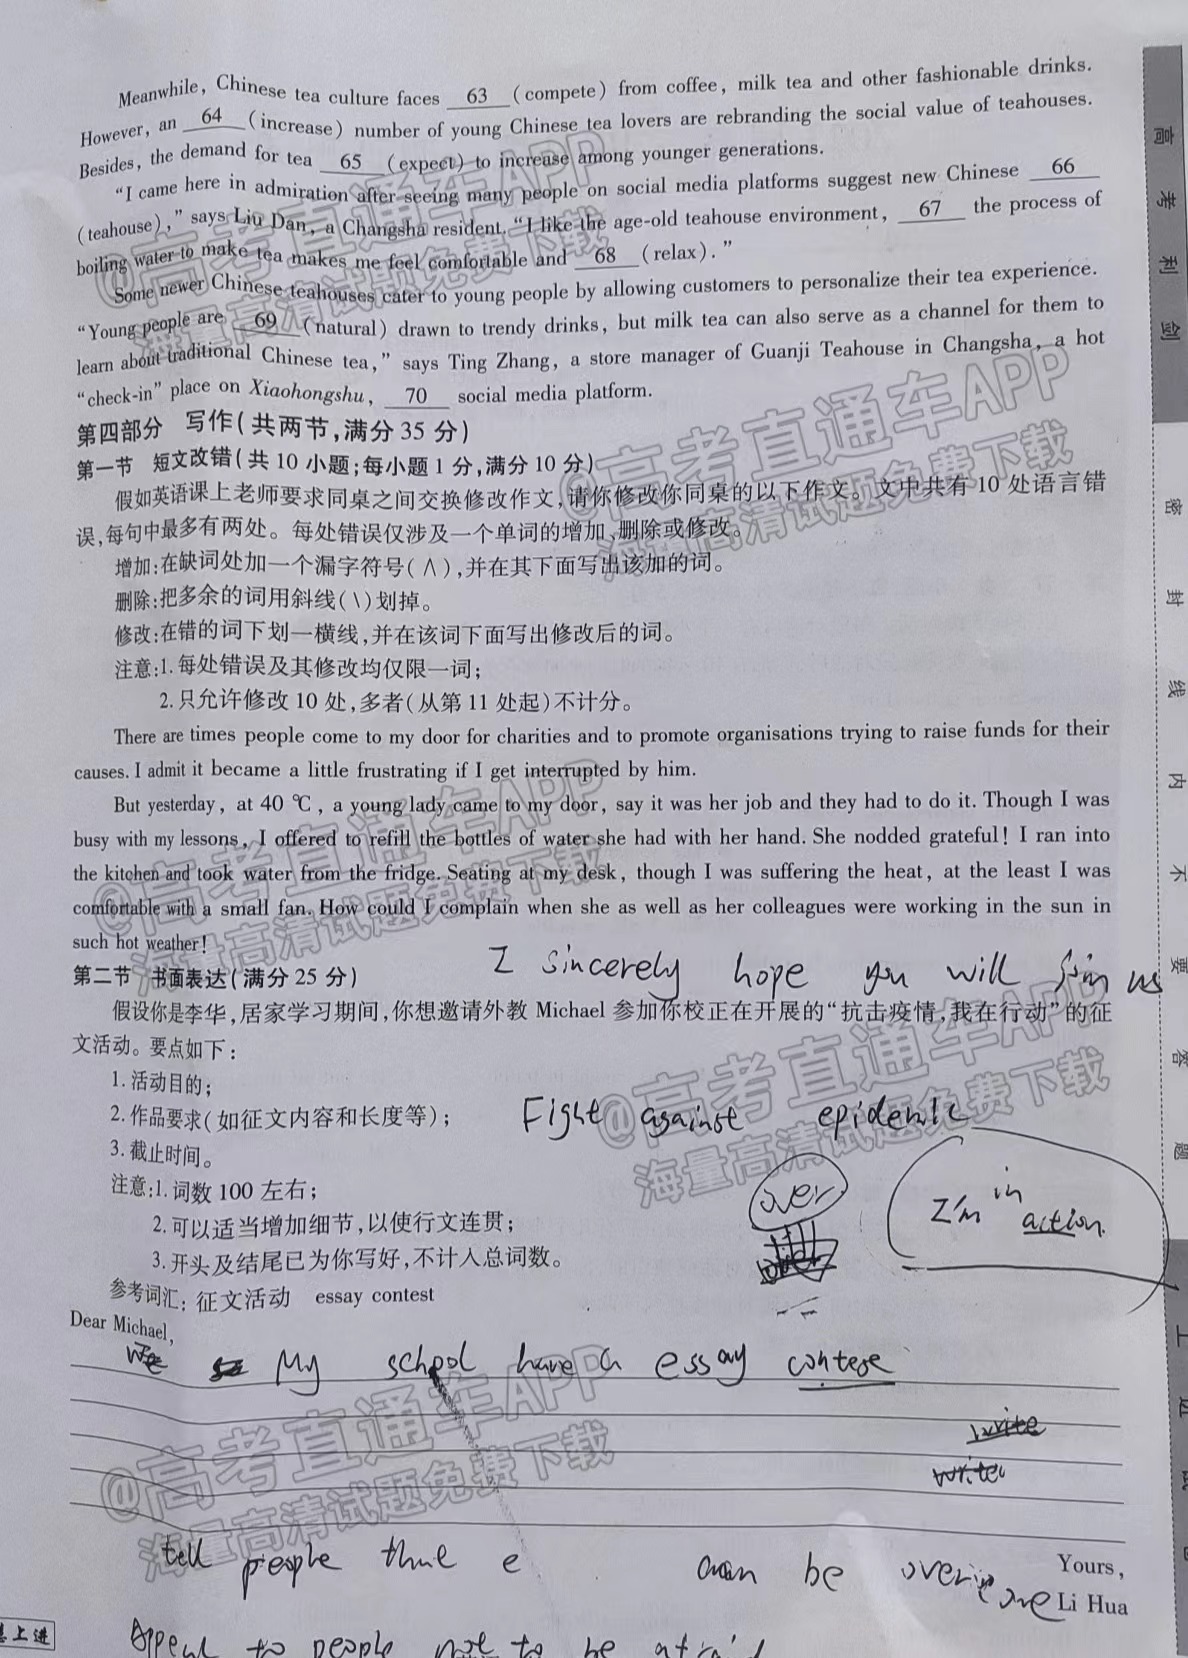 Meanwhile, Chinese tea culture faces 63 (compete) from coffee, milk tea and other fashionable drinks.
However, an 64 (increase) number of young Chinese tea lovers are rebranding the social value of teahouses.
Besides, the demand for tea 65 (expect) to increase among younger generations.
“I came here in admiration after seeing many people on social media platforms suggest new Chinese 66
(teahouse),” says Liu Dan, a Changsha resident. “I like the age-old teahouse environment, 67 the process of
boiling water to make tea makes me feel comfortable and 68 (relax).”
Some newer Chinese teahouses cater to young people by allowing customers to personalize their tea experience.
“Young people are 69 (natural) drawn to trendy drinks, but milk tea can also serve as a channel for them to
learn about traditional Chinese tea,” says Ting Zhang, a store manager of Guanji Teahouse in Changsha, a hot
“check-in” place on Xiaohongshu, 70 social media platform.
第四部分 写作(共两节,满分35分)
第一节 短文改错(共10小题;每小题1分,满分10分)
假如英语课上老师要求同桌之间交换修改作文,请你修改你同桌的以下作文。文中共有10处语言错
误,每句中最多有两处。每处错误仅涉及一个单词的增加、删除或修改。
增加:在缺词处加一个漏字符号(∧),并在其下面写出该加的词。
删除:把多余的词用斜线(\)划掉。
修改:在错的词下划一横线,并在该词下面写出修改后的词。
注意:1.每处错误及其修改均仅限一词;
2.只允许修改10处,多者(从第11处起)不计分。
There are times people come to my door for charities and to promote organisations trying to raise funds for their
causes. I admit it became a little frustrating if I get interrupted by him.
But yesterday, at 40 ℃, a young lady came to my door, say it was her job and they had to do it. Though I was
busy with my lessons, I offered to refill the bottles of water she had with her hand. She nodded grateful! I ran into
the kitchen and took water from the fridge. Seating at my desk, though I was suffering the heat, at the least I was
comfortable with a small fan. How could I complain when she as well as her colleagues were working in the sun in
such hot weather!
I sincerely hope you will join us
第二节 书面表达(满分25分)
假设你是李华,居家学习期间,你想邀请外教Michael参加你校正在开展的“抗击疫情,我在行动”的征
文活动。要点如下:
1.活动目的;
2.作品要求(如征文内容和长度等);
Fight against epidemic
3.截止时间。
注意:1.词数100左右;
over
I'm in action.
2.可以适当增加细节,以使行文连贯;
3.开头及结尾已为你写好,不计入总词数。
参考词汇:征文活动 essay contest
Dear Michael,
My school have a essay contese
write
tell people that e can be over
Yours,
Li Hua
Appeal to people not to be afraid
高考利剑
密封线内不要答题
上进
@高考直通车APP
海量高清试题免费下载
@高考直通车APP
海量高清试题免费下载
@高考直通车APP
海量高清试题免费下载
@高考直通车APP
海量高清试题免费下载
@高考直通车APP
海量高清试题免费下载